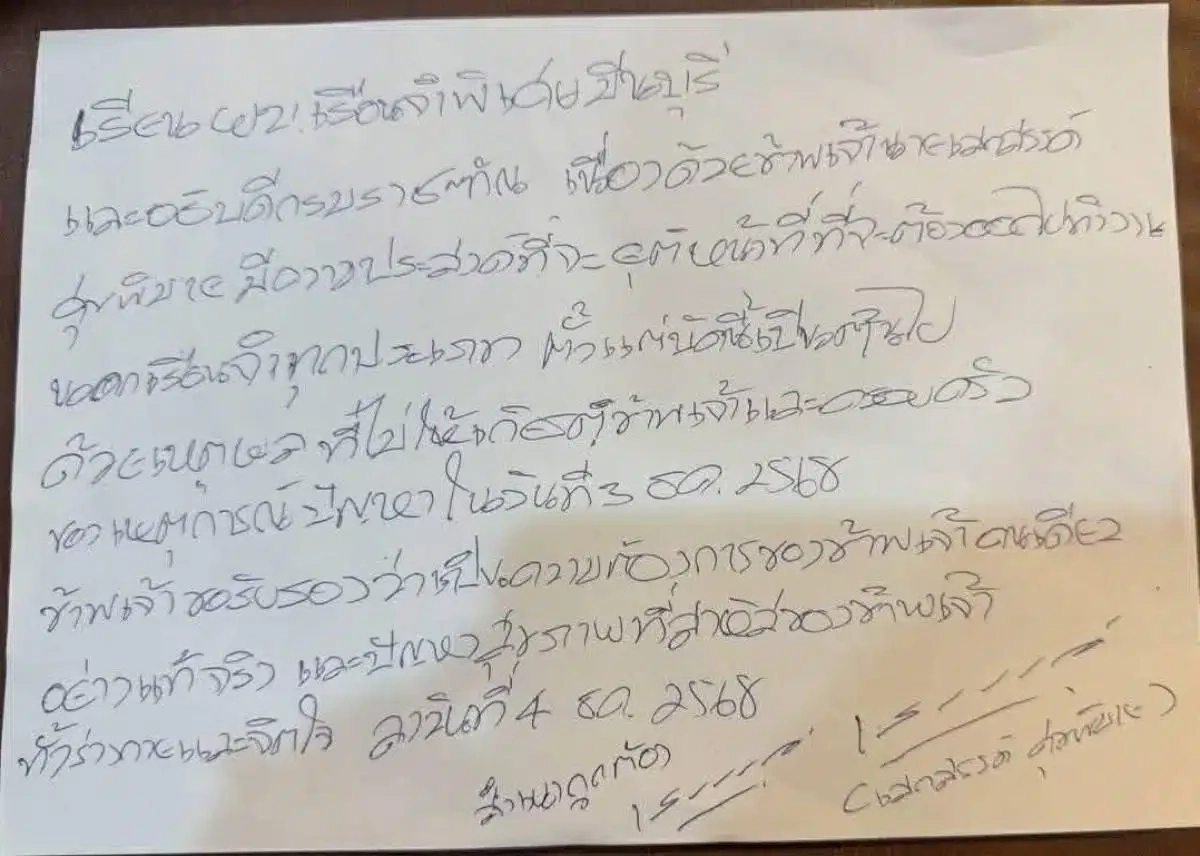 เรียน ผบ.เรือนจำพิเศษมีนบุรี
และอธิบดีกรมราชทัณ เนื่องด้วยข้าพเจ้านายเสกสรรค์
ศุขพิมาย มีความประสงค์ที่จะยุติหน้าที่ที่จะต้องออกไปทำงาน
นอกเรือนจำทุกประเภท ตั้งแต่บัดนี้เป็นต้นไป
ด้วยเหตุผล ที่ไม่ให้เกิด ข้าพเจ้าและครอบครัว
ของเหตุการณ์ปัญหาในวันที่ 3 ธค. 2568
ข้าพเจ้าขอรับรองว่าเป็นความต้องการของข้าพเจ้าคนเดียว
อย่างแท้จริง และปัญหาสุขภาพที่ ของข้าพเจ้า
ทั้งร่างกายและจิตใจ ลงวันที่ 4 ธค. 2568
(เสกสรรค์ ศุขพิมาย)
สำเนาถูกต้อง